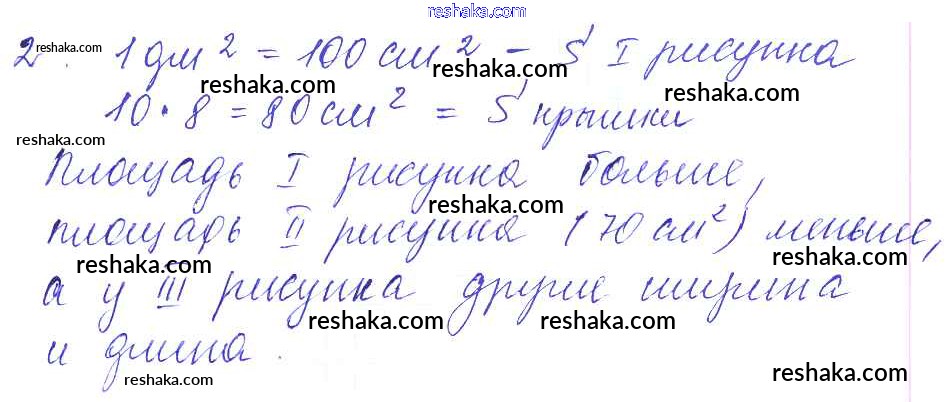 reshaka.com
2. 1 дм² = 100 см² - S I рисунка
10 · 8 = 80 см² = S крышки
Площадь I рисунка больше,
площадь II рисунка (70 см²) меньше,
а у III рисунка другие ширина
и длина.
reshaka.com
reshaka.com
reshaka.com
reshaka.com
reshaka.com
reshaka.com
reshaka.com
reshaka.com
reshaka.com
reshaka.com
reshaka.com
reshaka.com